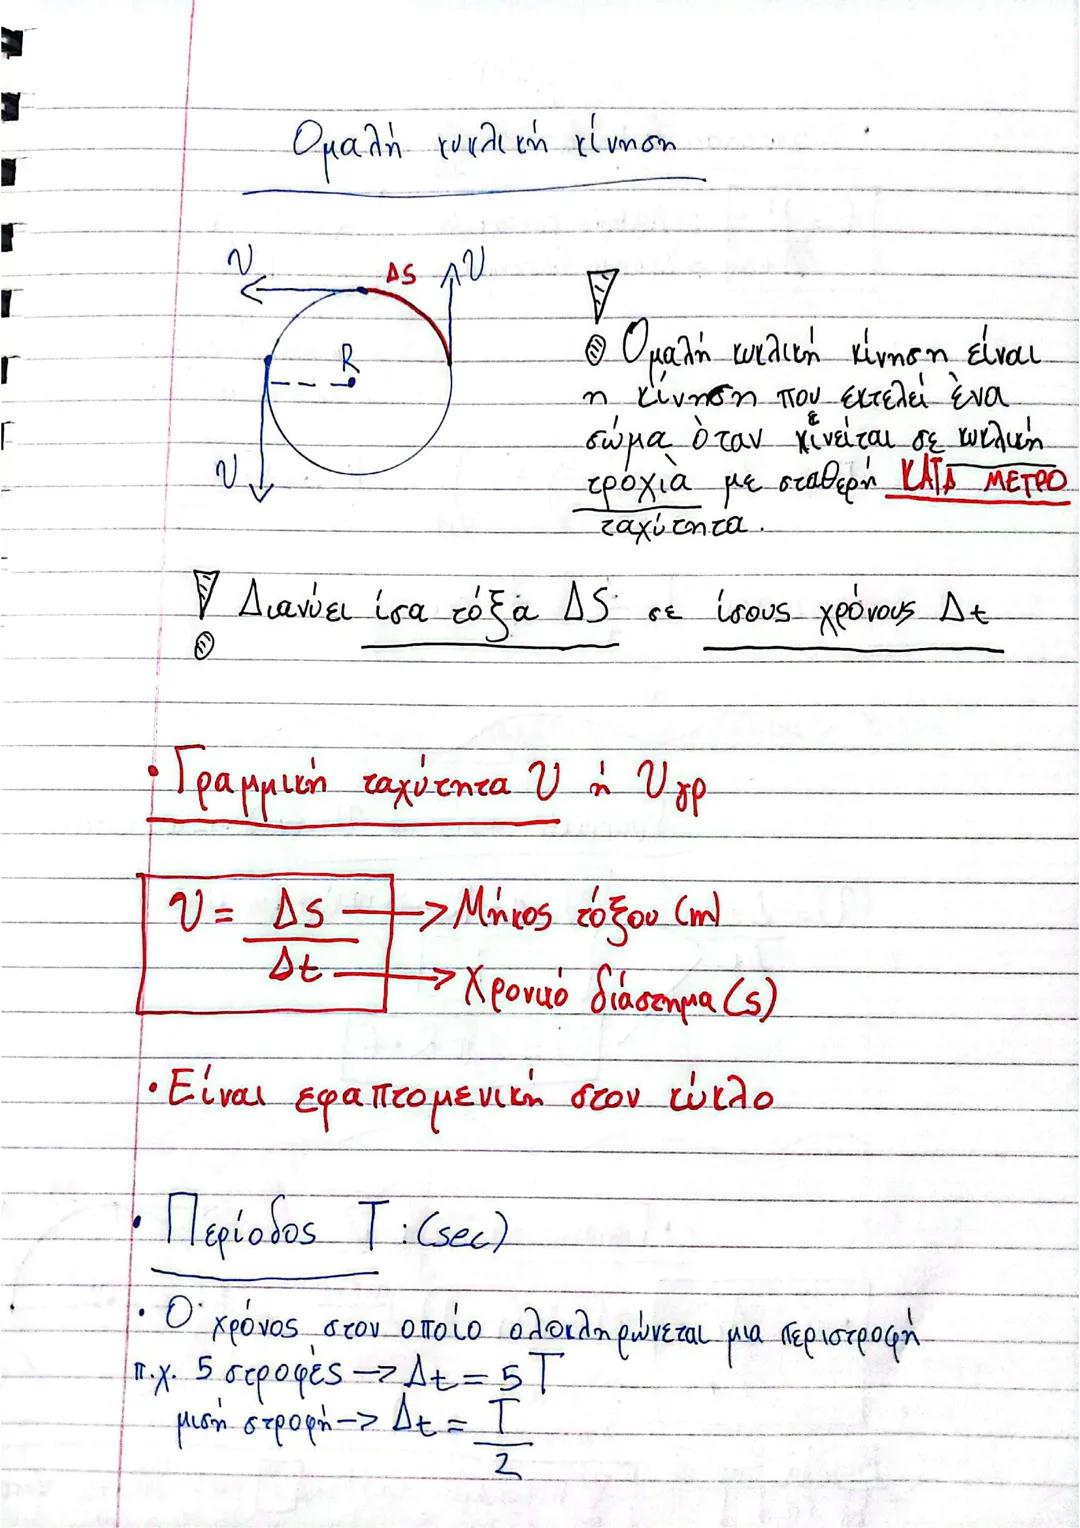 Ομαλή κυκλική κίνηση
υ ΔS υ
R
υ
Ομαλή κυκλική κίνηση είναι
η κίνηση που εκτελεί ένα
σώμα όταν κινείται σε κυκλική
τροχιά με σταθερή ΚΑΤΑ ΜΕΤΡΟ
ταχύτητα.
Διανύει ίσα τόξα ΔS σε ίσους χρόνους Δt
• Γραμμική ταχύτητα υ ή υγρ
υ = ΔS → Μήκος τόξου (m)
Δt → Χρονικό διάστημα (s)
• Είναι εφαπτομενική στον κύκλο
• Περίοδος T : (sec)
• Ο χρόνος στον οποίο ολοκληρώνεται μια περιστροφή
π.χ. 5 στροφές → Δt = 5T
μισή στροφή → Δt = T
2